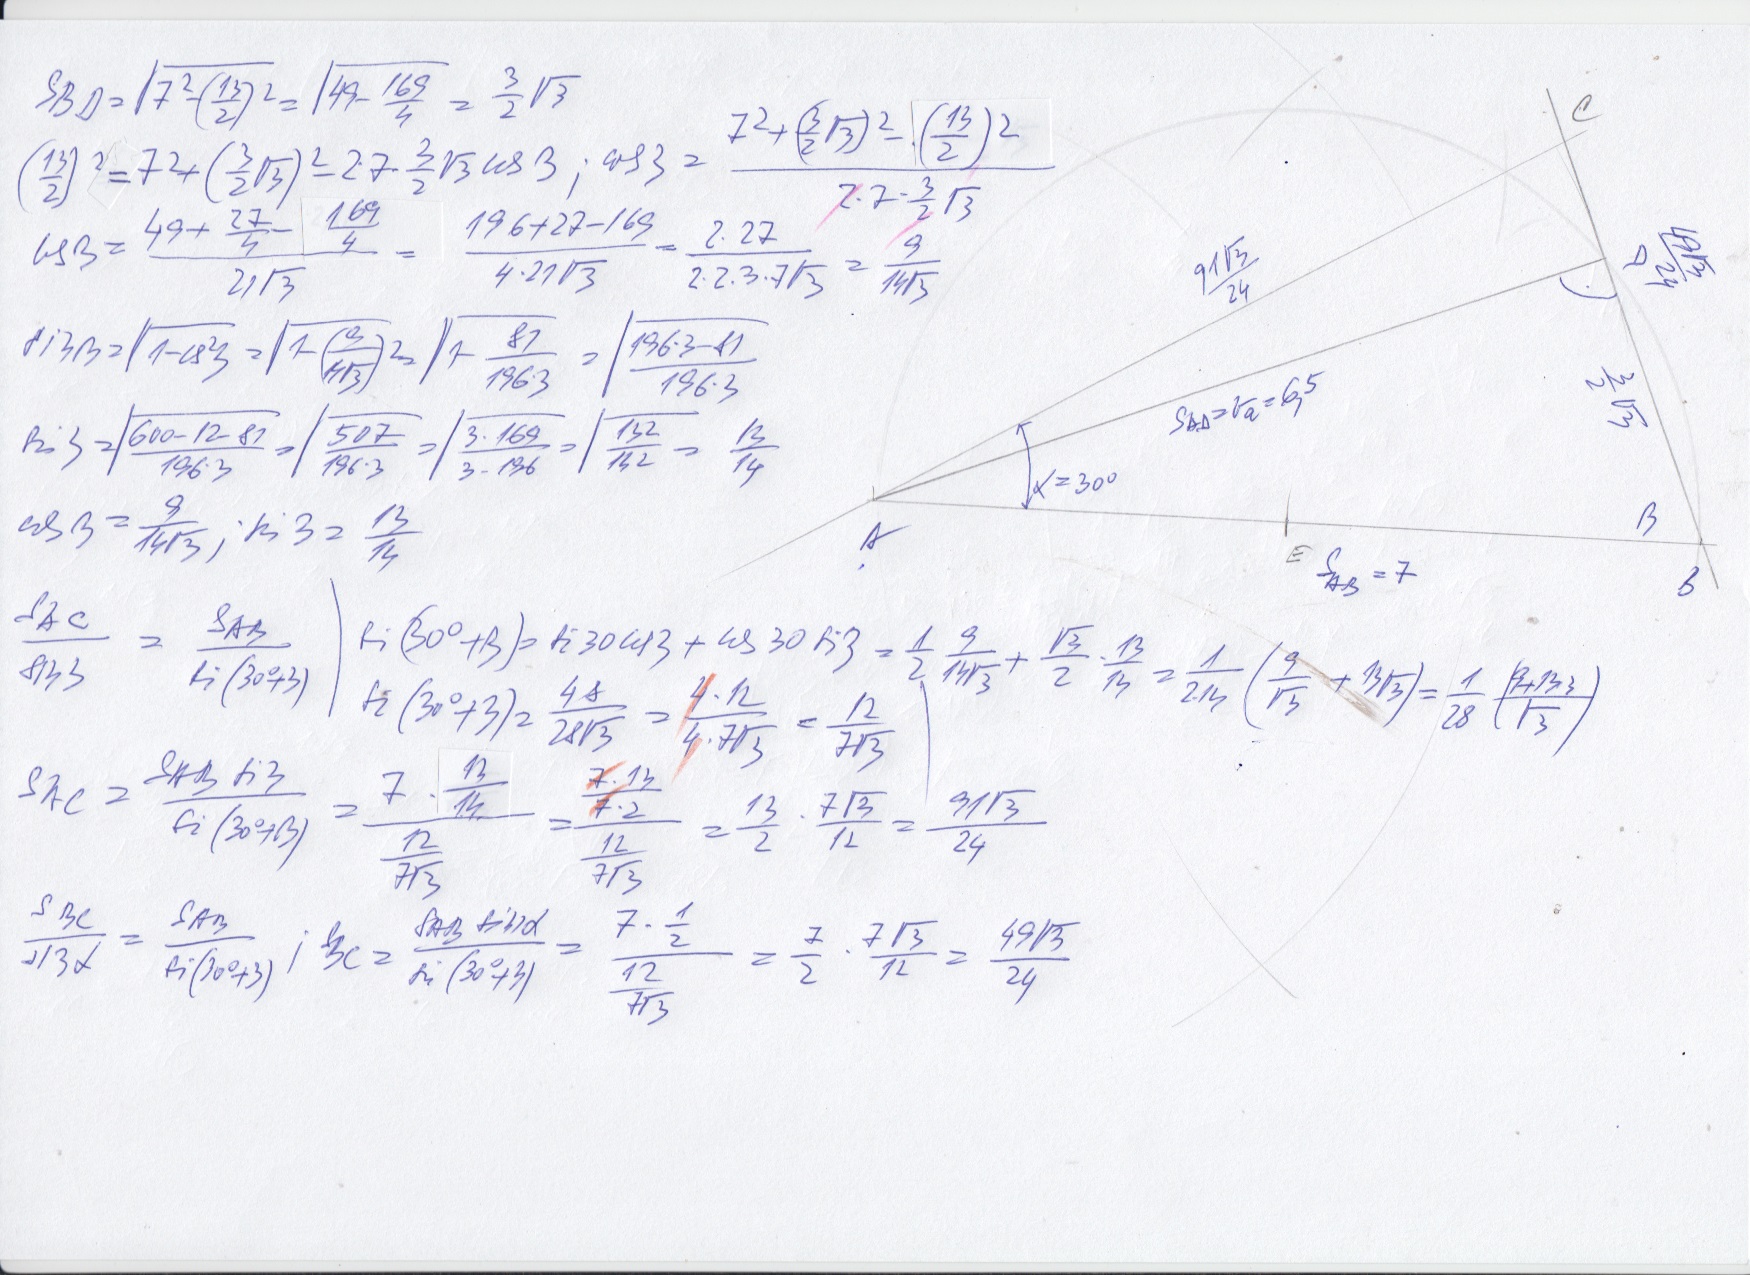 S_BD = √(7² - (13/2)²) = √(49 - 169/4) = 3/2 √3
(13/2)² = 7² + (3/2 √3)² - 2·7·3/2 √3 cos β ; cos β = (7² + (3/2 √3)² - (13/2)²) / (2·7·3/2 √3)
cos β = (49 + 27/4 - 169/4) / (21√3) = (196 + 27 - 169) / (4·21√3) = (2·27) / (2·2·3·7√3) = 9/(14√3)
sin β = √(1 - cos²β) = √(1 - (9/(14√3))²) = √(1 - 81/(196·3)) = √((196·3 - 81)/(196·3))
sin β = √((600 - 12 - 81)/(196·3)) = √(507/(196·3)) = √((3·169)/(3·196)) = √(13²/14²) = 13/14
cos β = 9/(14√3) ; sin β = 13/14
S_AC / sin β = S_AB / sin(30°+β) | sin(30°+β) = sin 30 cos β + cos 30 sin β = 1/2 9/(14√3) + √3/2 · 13/14 = 1/(2·14) (9/√3 + 13√3) = 1/28 ((9+13·3)/√3)
sin(30°+β) = 48/(28√3) = (4·12)/(4·7√3) = 12/(7√3)
S_AC = (S_AB sin β) / sin(30°+β) = (7 · 13/14) / (12/(7√3)) = ((7·13)/(7·2)) / (12/(7√3)) = 13/2 · 7√3/12 = 91√3/24
S_BC / sin α = S_AB / sin(30°+β) ; S_BC = (S_AB sin α) / sin(30°+β) = (7 · 1/2) / (12/(7√3)) = 7/2 · 7√3/12 = 49√3/24
C
91√3/24
49√3/24
D
3/2 √3
S_AD = v_a = 6,5
α = 30°
A
β
E
S_AB = 7
B